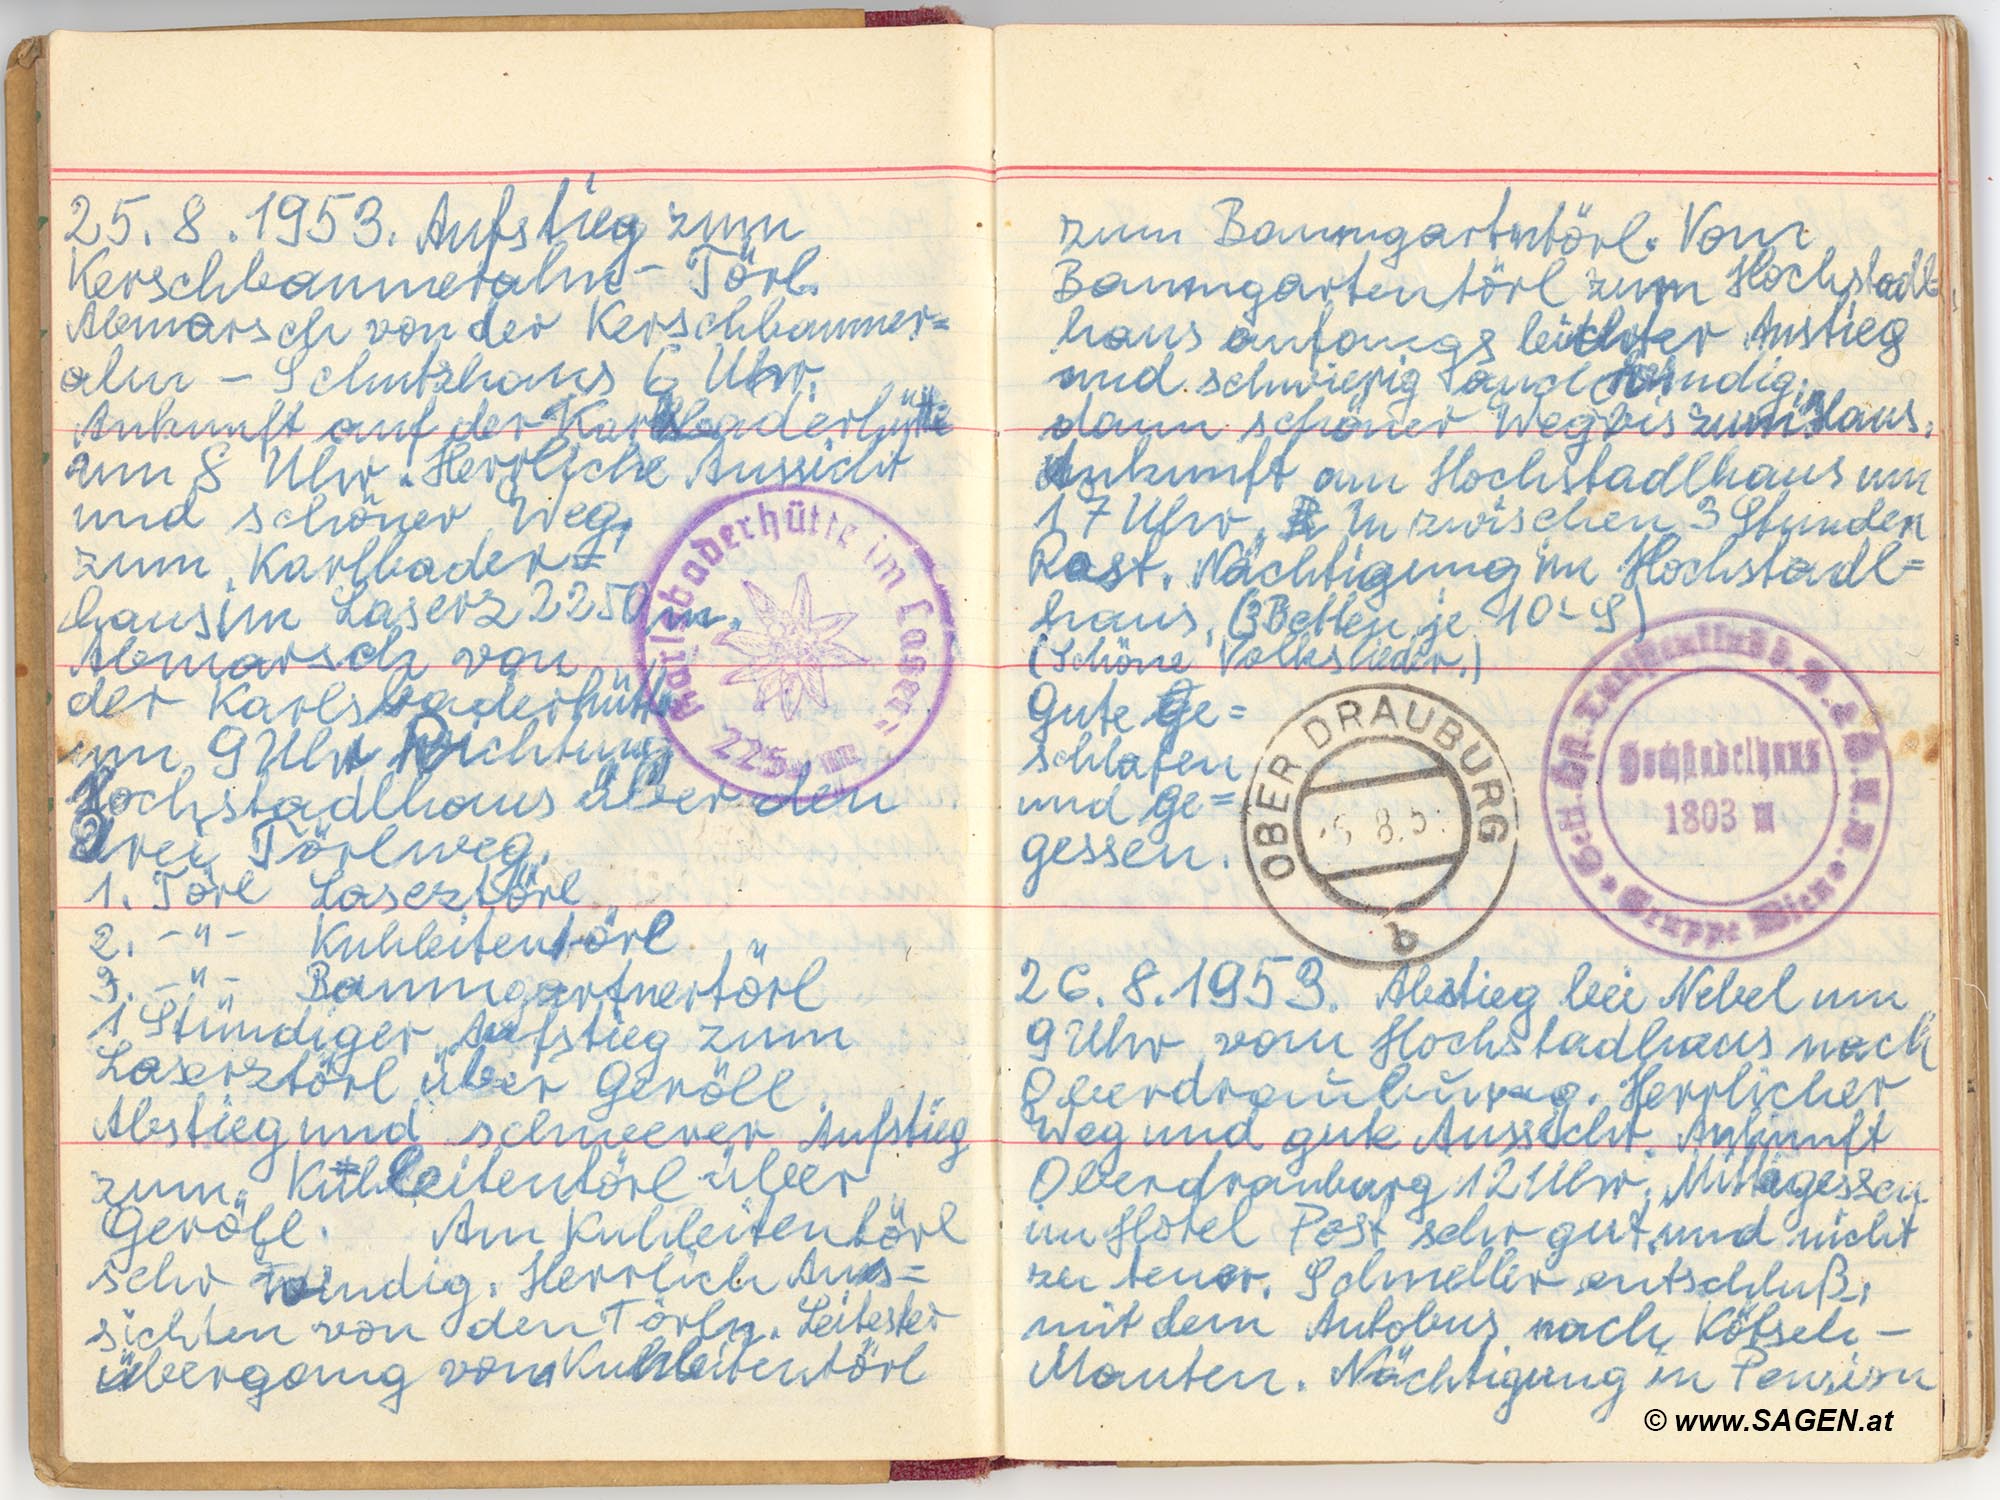 25.8.1953. Aufstieg zum
Kerschbaumeralm - Törl.
Abmarsch von der Kerschbaumer=
alm - Schutzhaus 6 Uhr.
Ankunft auf der Karlsbaderhütte
um 8 Uhr. Herrliche Aussicht
und schöner Weg,
zum Karlbader=
haus im Laserz 2250 m.
Abmarsch von
der Karlsbaderhütte
um 9 Uhr Richtung
Hochstadlhaus über den
Drei Törlweg.
1. Törl Laserztörl
2. -"- Kuhleitentörl
3. -"- Baumgartnertörl
1 Stündiger Aufstieg zum
Laserztörl über Geröll.
Abstieg und schwerer Aufstieg
zum Kuhleitentörl über
Geröll. Am Kuhleitentörl
sehr windig. Herrlich Aus=
sichten von den Törln. Leitester
übergang vom Kuhleitentörl
Karlsbaderhütte im Laserz
225 m
zum Baumgartntörl. Vom
Baumgartentörl zum Hochstadl
haus anfangs leichter Anstieg
und schwierig auch windig,
dann schöner Weg bis zum Haus.
Ankunft am Hochstadlhaus um
17 Uhr. In zwischen 3 Stunden
Rast. Nächtigung im Hochstadl=
haus. (3 Betten je 10.- S)
(Schöne Volkslieder.)
Gute Ge=
schlafen
und ge=
gessen.
OBER DRAUBURG
8.5
b
Hochstadelhaus
1803 m
Gruppe Wien
26.8.1953. Abstieg bei Nebel um
9 Uhr vom Hochstadlhaus nach
Oberdrauburg. Herrlicher
Weg und gute Aussicht. Ankunft
Oberdrauburg 12 Uhr. Mittagessen
im Hotel Post sehr gut und nicht
zu teuer. Schneller entschluß,
mit dem Autobus nach Kötsch-
Mauten. Nächtigung in Pension
© www.SAGEN.at